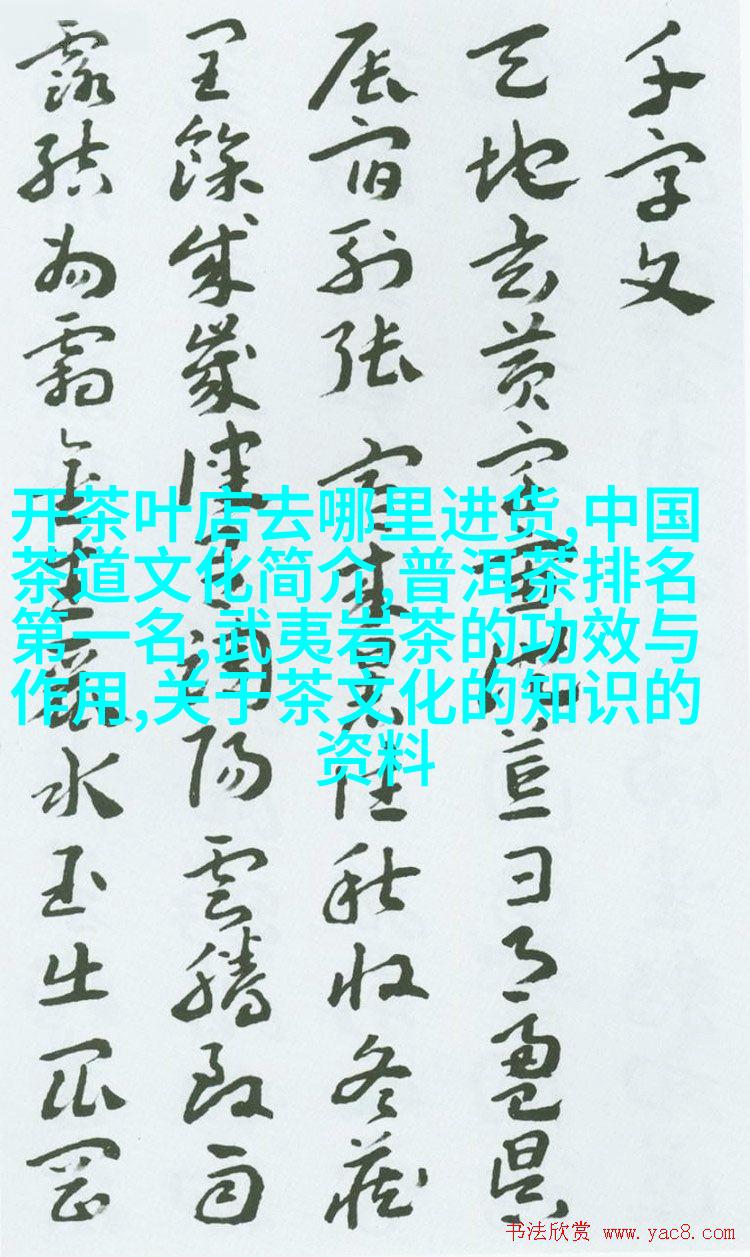 千字文
天地玄黄宇宙洪荒日月盈昃
辰宿列张寒来暑往秋收冬藏
闰餘成歲律吕调阳雲腾致雨
露结为霜金生麗水玉出崑岡
开茶叶店去哪里进货,中国
茶道文化简介,普洱茶排名
第一名,武夷岩茶的功效与
作用,关于茶文化的知识的
资料
书法欣赏 www.yac8.com